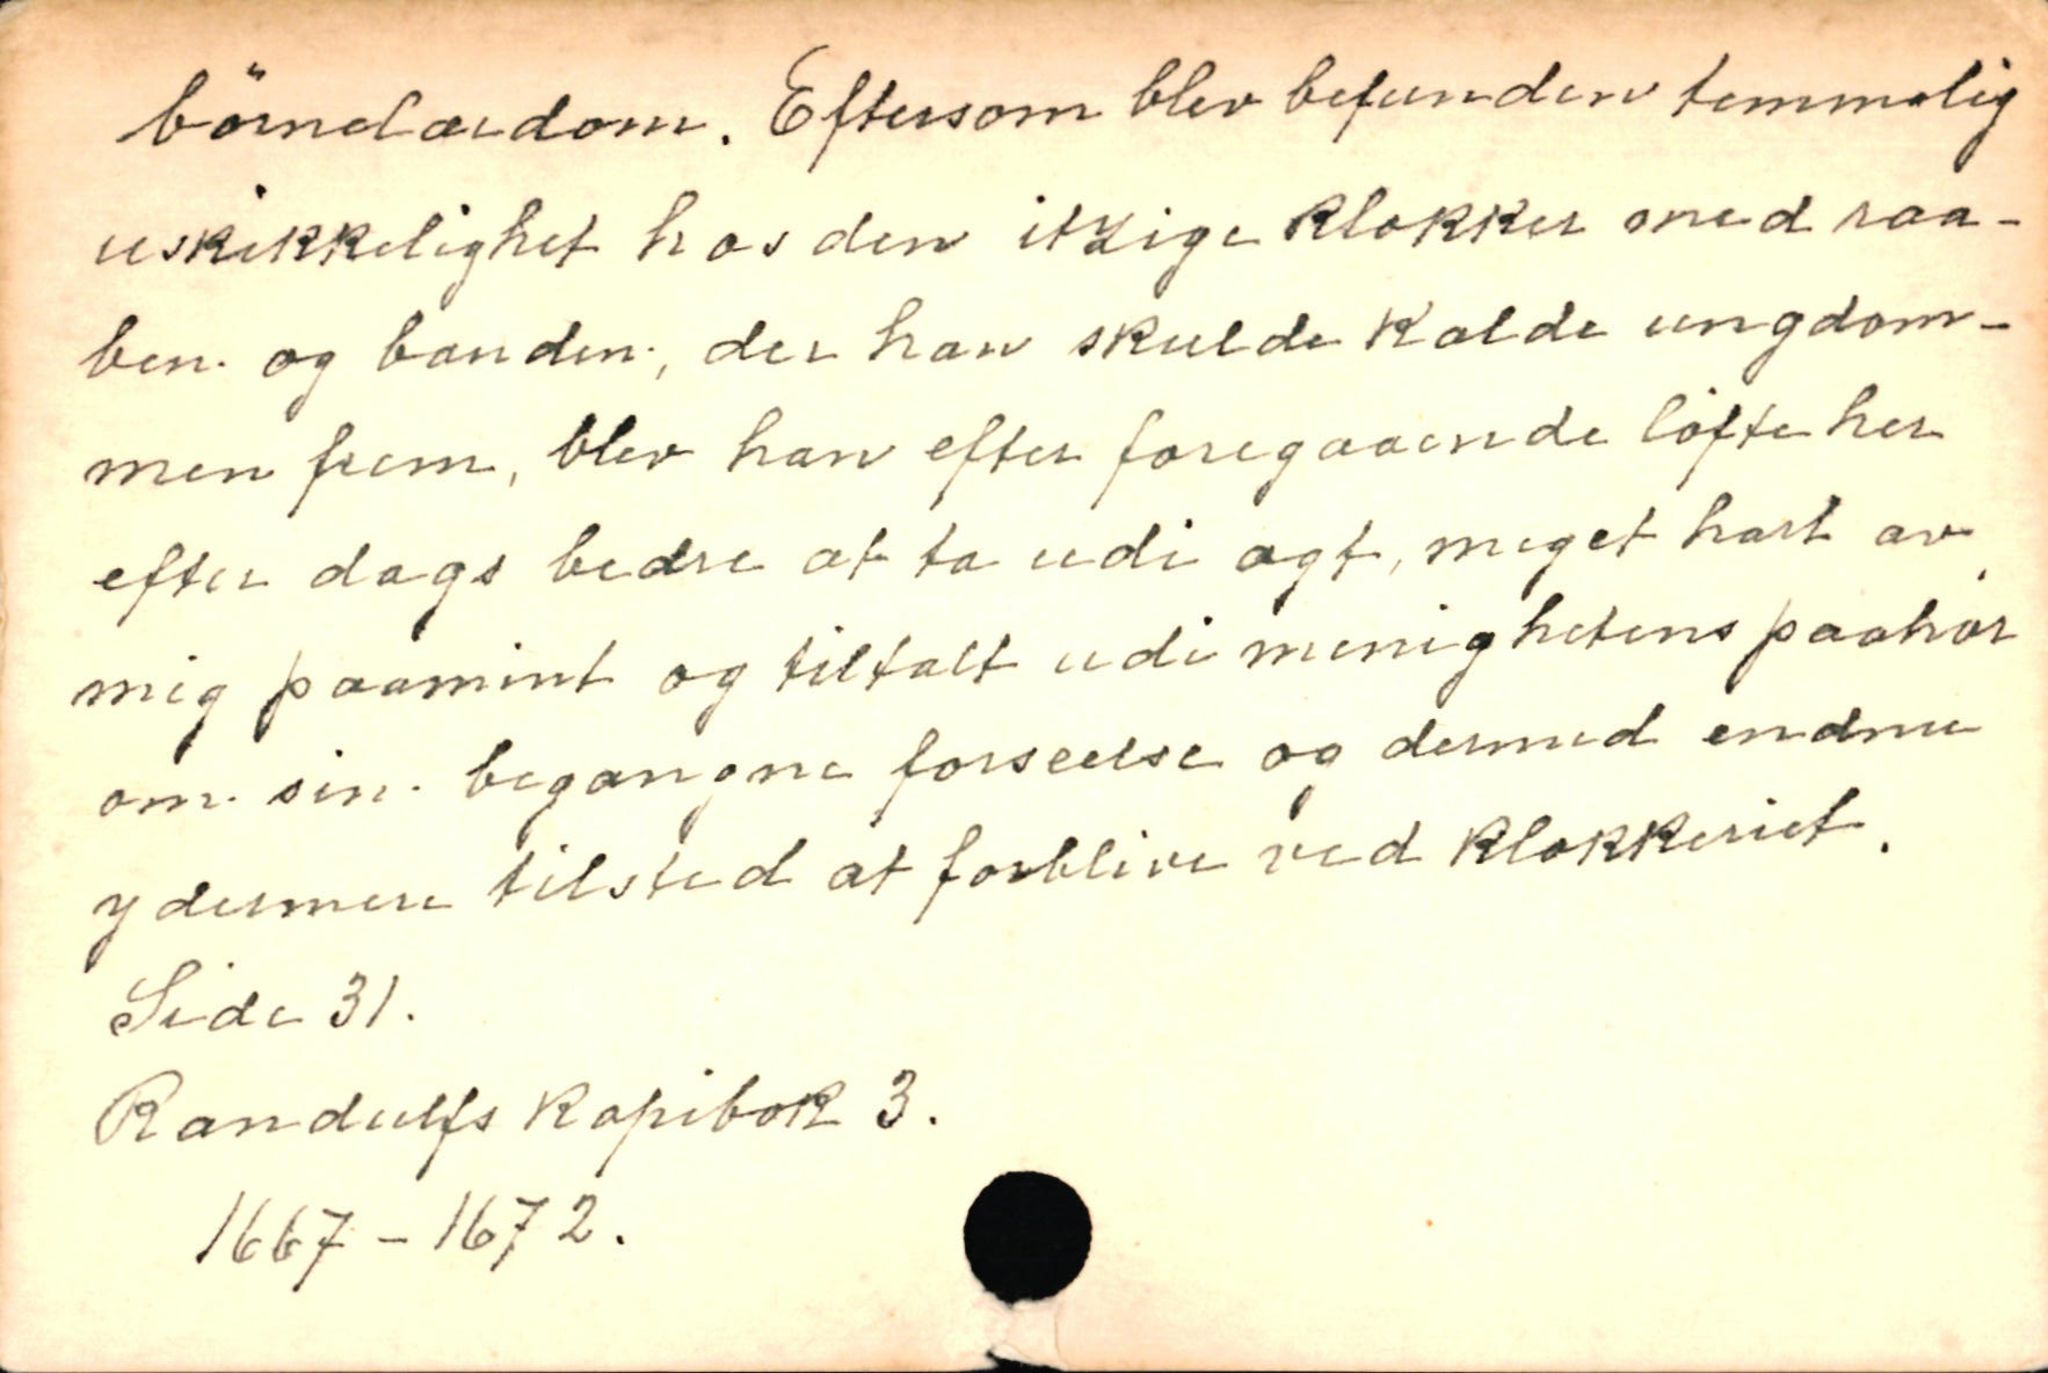 börnelærdom. Eftersom blev befunden temmelig
uskikkelighet hos den itzige klokker med raa-
ben og banden, der han skulde kalde ungdom-
men frem, blev han efter foregaaende löfte her
efter dags bedre at ta udi agt, meget hart av
mig paamint og tiltalt udi menighetens paahör
om sin begangne forseelse og dermed endnu
ydermere tilsted at forblive ved klokkeriet.
Side 31.
Randulfs kopibok 3.
1667-1672.